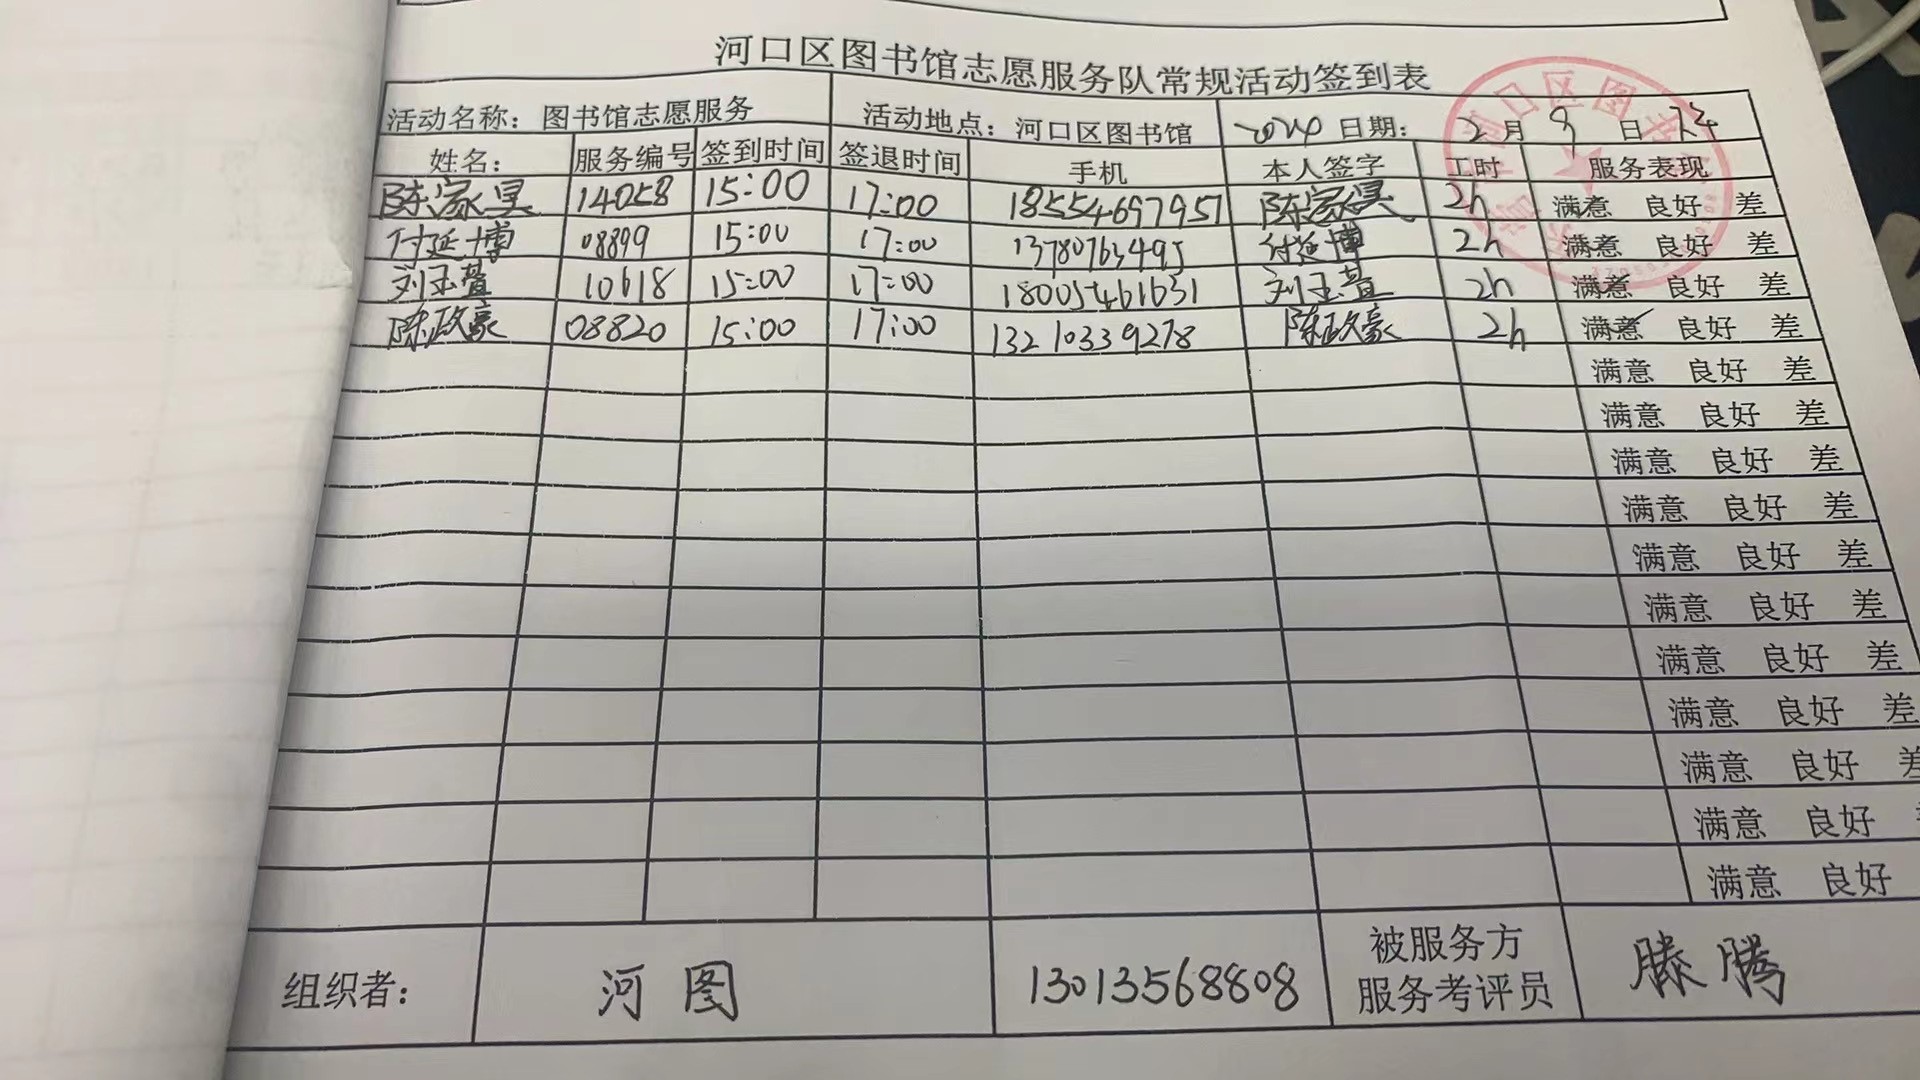 河口区图书馆志愿服务队常规活动签到表
活动名称：图书馆志愿服务 活动地点：河口区图书馆 2024 日期： 2 月 9 日 下午
姓名： 服务编号 签到时间 签退时间 手机 本人签字 工时 服务表现
陈家昊 14058 15:00 17:00 18554697957 陈家昊 2h 满意 良好 差
付延博 08899 15:00 17:00 13780763495 付延博 2h 满意 良好 差
刘玉萱 10618 15:00 17:00 18005461631 刘玉萱 2h 满意 良好 差
陈政豪 08820 15:00 17:00 13210339278 陈政豪 2h 满意 良好 差
满意 良好 差
满意 良好 差
满意 良好 差
满意 良好 差
满意 良好 差
满意 良好 差
满意 良好 差
满意 良好 差
满意 良好 差
满意 良好
满意 良好
组织者： 河图 13013568808 被服务方 滕腾
服务考评员
河口区图书